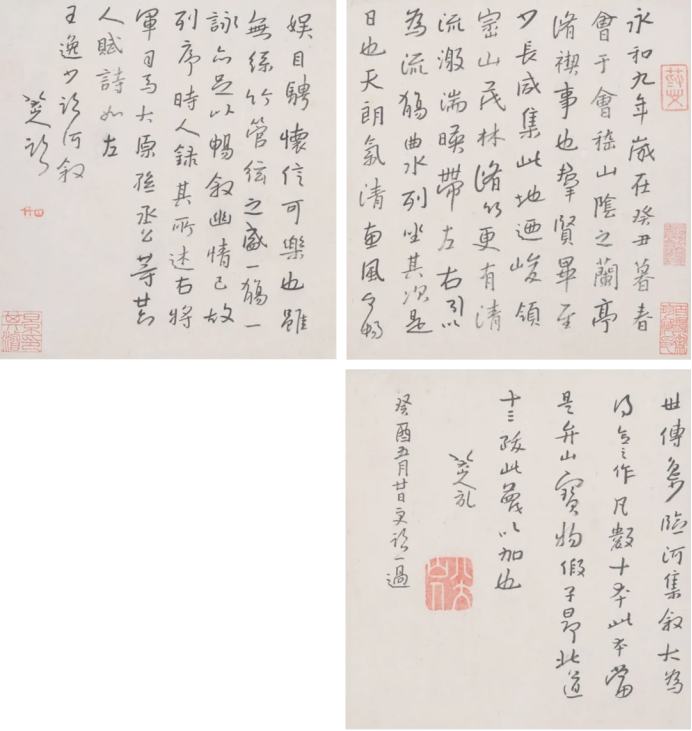 永和九年歲在癸丑暮春
會于會稽山陰之蘭亭
脩禊事也羣賢畢至
少長咸集此地迺峻領
崇山茂林脩竹更有清
流激湍暎帶左右引以
為流觴曲水列坐其次是
日也天朗氣清惠風和暢
娛目騁懷信可樂也雖
無絲竹管絃之盛一觴一
詠亦足以暢敘幽情已故
列序時人錄其所述右將
軍司馬太原孫丞公等廿六
人賦詩如左
王逸少臨河敘
八大山人臨
世傳臨河集敘大為
得意之作凡數十本此本當
是弁山寶物假子昂北道
十三跋此蔑以加也
八大山人記
癸酉五月廿日更臨一過